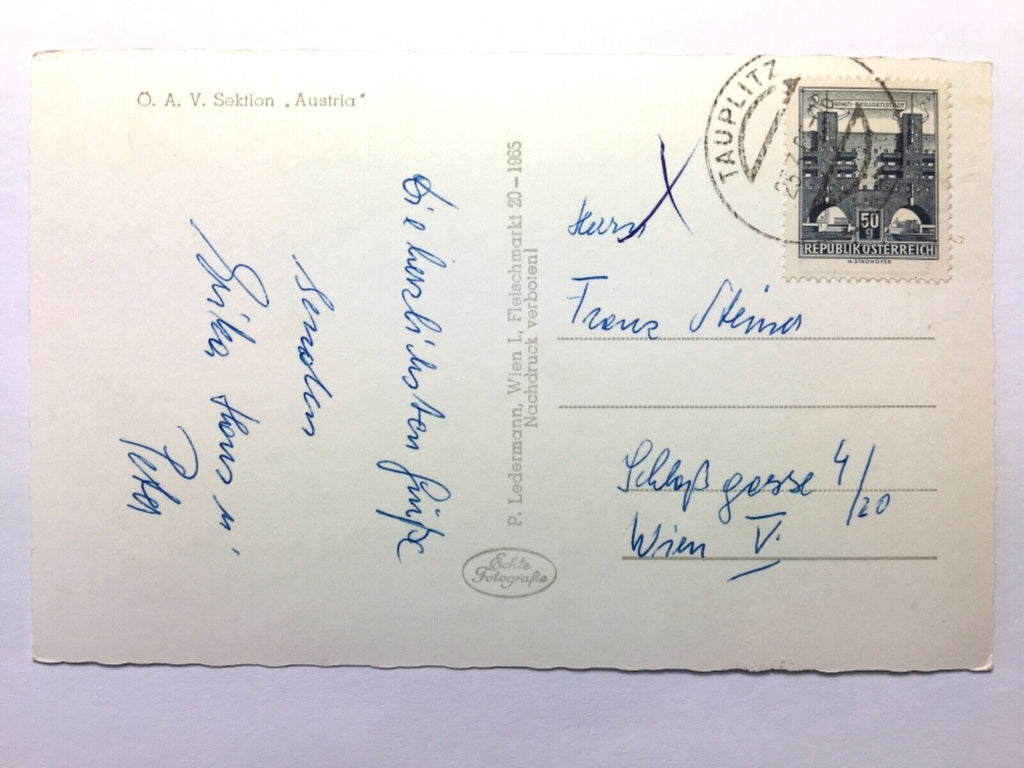 Ö. A. V. Sektion „Austria"
Die herzlichsten Grüße
senden
Erika, Hans u.
Peter
P. Ledermann, Wien I., Fleischmarkt 20 – 1965
Nachdruck verboten!
Echte
Fotografie
TAUPLITZ
WIEN-HEILIGENSTADT
50
g
REPUBLIK ÖSTERREICH
H. STROHOFER
Herrn
Franz Steiner
Schloßgasse 4/20
Wien V.